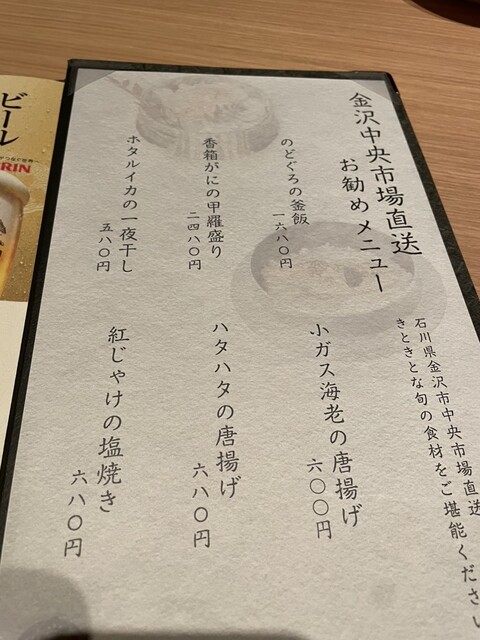 金沢中央市場直送
お勧めメニュー
石川県金沢市中央市場直送
きときとな旬の食材をご堪能ください
のどぐろの釜飯
一六八〇円
香箱がにの甲羅盛り
二四八〇円
ホタルイカの一夜干し
五八〇円
小ガス海老の唐揚げ
六〇〇円
ハタハタの唐揚げ
六八〇円
紅じゃけの塩焼き
六八〇円
ビール
RIN